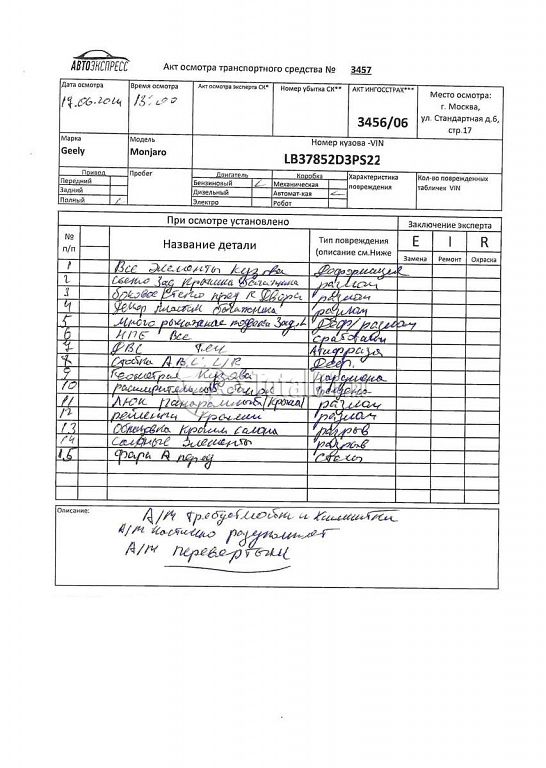 АВТОЭКСПРЕСС
Акт осмотра транспортного средства № 3457
Дата осмотра Время осмотра Акт осмотра эксперта СК* Номер убытка СК** АКТ ИНГОССТРАХ*** Место осмотра:
13:00 3456/06 г. Москва,
ул. Стандартная д.6,
стр.17
Марка Модель Номер кузова -VIN
Geely Monjaro LB37852D3PS22
Привод Пробег Двигатель Коробка Характеристика повреждения Кол-во поврежденных табличек VIN
Передний Бензиновый Механическая
Задний Дизельный Автомат-кая
Полный Электро Робот
При осмотре установлено Заключение эксперта
№ п/п Название детали Тип повреждения (описание см.Ниже E I R
Замена Ремонт Окраска
1 Все элементы кузова Деформация
2 Стекло Зад Крышки Багажника разлом
3 боковое Стекло разлом
4 пластик разлом
5 Деф/разлом
6 НПБ Все сработали
7 ДВС
8 Стойка А В С L/R Деф.
9 Геометрия Кузова
10 расширительный
11 Люк Панорамный (Крыша) разлом
12 рейлинги Крыши разлом
13 Обшивка Крыши салона разрыв
14 элементы разрыв
15 Фара перед
Описание: А/м Требует Мойки и
А/м частично разукомплект
А/м перевертыш